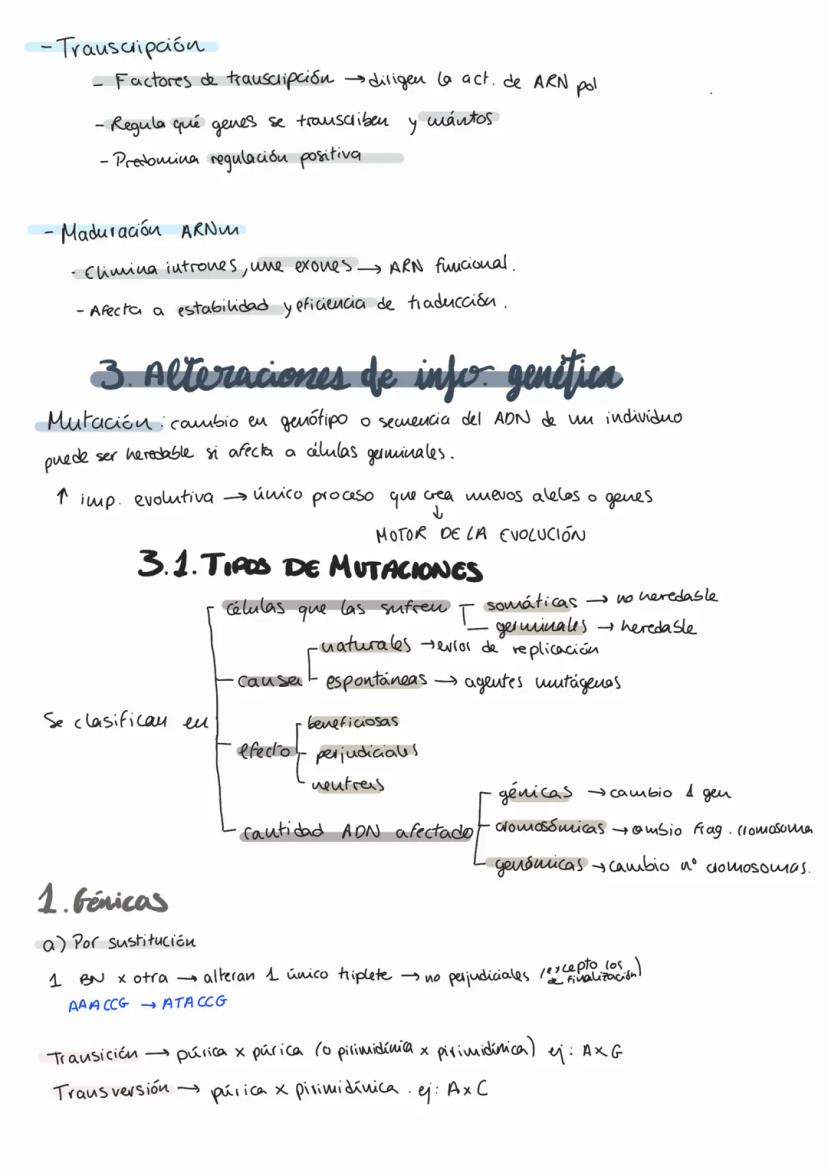 - Transcripción
- Factores de transcripción → dirigen la act. de ARN pol
- Regula qué genes se transcriben y cuántos
- Predomina regulación positiva
- Maduración ARNm
· Elimina intrones, une exones → ARN funcional.
- Afecta a estabilidad y eficiencia de traducción.
3. Alteraciones de info. genética
Mutación: cambio en genótipo o secuencia del ADN de un individuo
puede ser heredable si afecta a células germinales.
↑ imp. evolutiva → único proceso que crea nuevos alelos o genes
↓
MOTOR DE LA EVOLUCIÓN
3.1. TIPOS DE MUTACIONES
células que las sufren
somáticas → no heredable
germinales → heredable
naturales → error de replicación
causa
espontáneas → agentes mutágenos
Se clasifican en
beneficiosas
efecto
perjudiciales
neutras
génicas → cambio 1 gen
cantidad ADN afectado
cromosómicas → cambio frag. cromosoma
genómicas → cambio nº cromosomas.
1. Génicas
a) Por sustitución
1 BN x otra → alteran 1 único triplete → no perjudiciales (excepto los de finalización)
AAACCG → ATACCG
Transición → púrica x púrica (o pirimidínica x pirimidínica) ej: AxG
Transversión → púrica x pirimidínica. ej: AxC